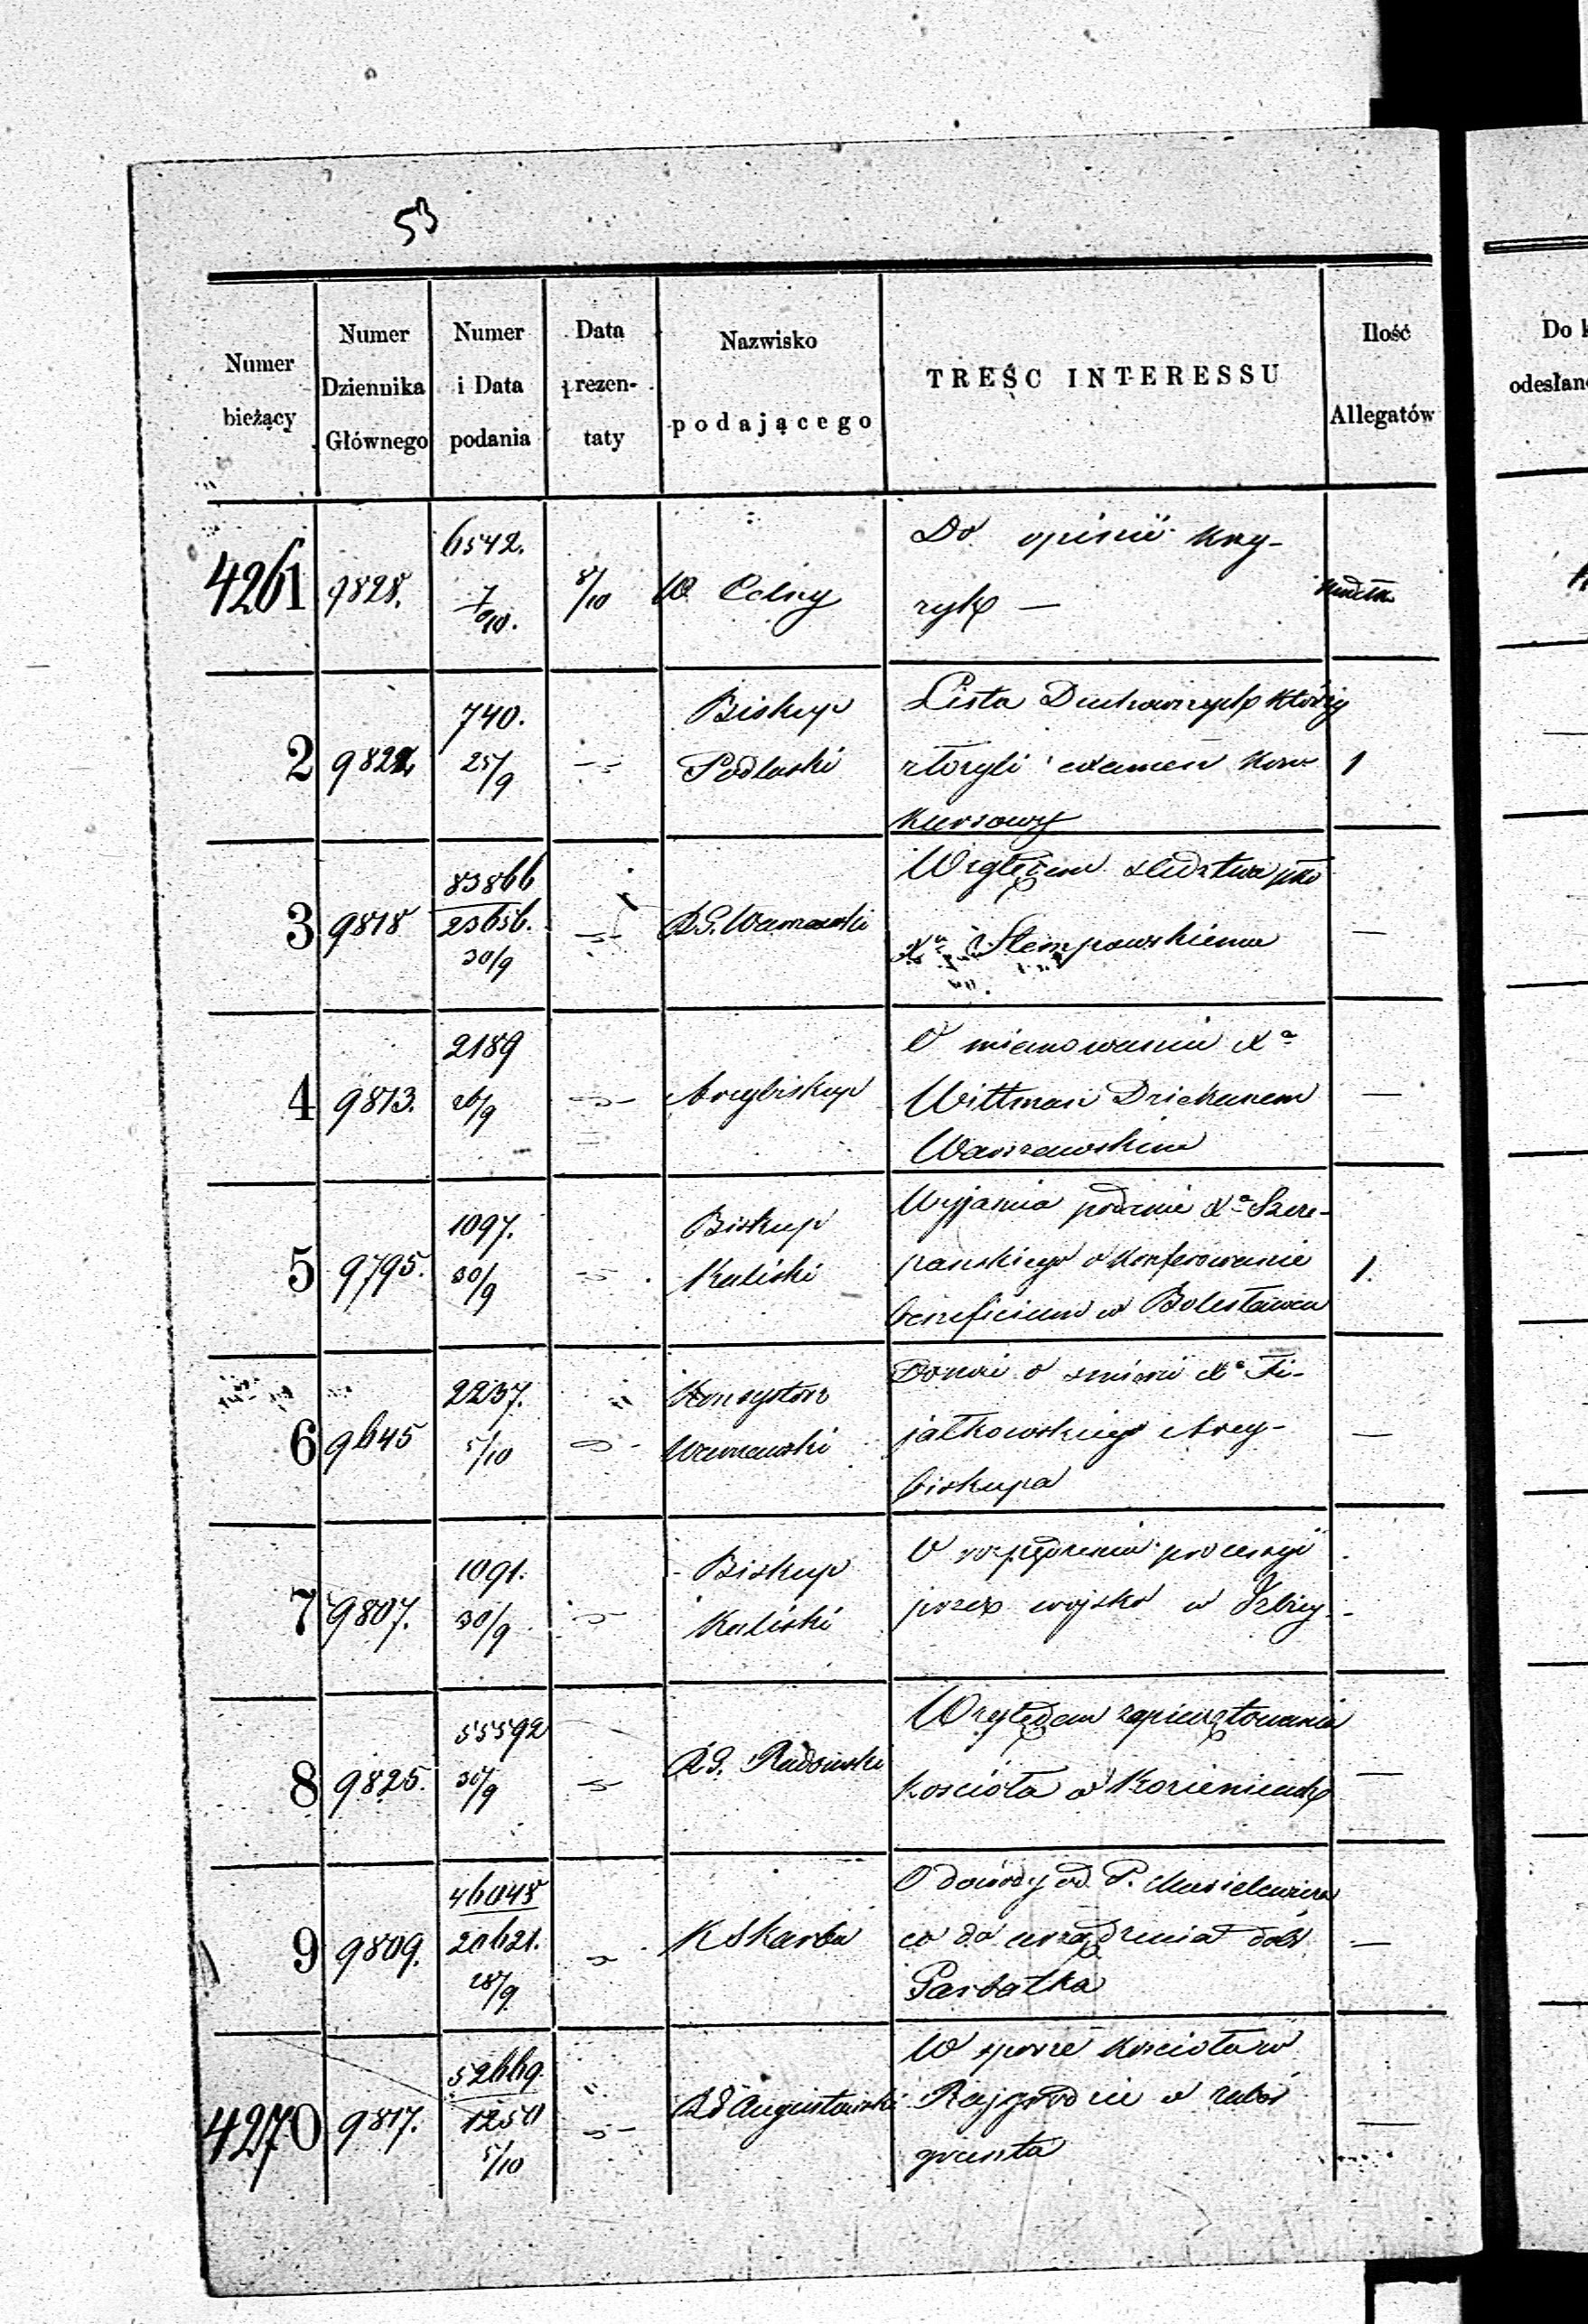 53
Numer bieżący
Numer Dziennika Głównego
Numer i Data podania
Data prezentaty
Nazwisko podającego
TREŚC INTERESSU
Ilość Allegatów
Do k
odesłan
4261 9828. 6542. 7/10. 8/10 W. Celny
Do opinii kry-
ryk —
2 9822 740. 25/9 Biskup Podlaski 1
Lista Duchownych którzy
złożyli examen kon-
kursowy
3 9818 83866 23656. 30/9 R.G. Warszawski —
Względem śledztwa pko
Xu Stempowskiemu
4 9813. 2189 26/9 Arcybiskup —
O mianowaniu Xa
Wittman Dziekanem
Warszawskim
5 9795. 1097. 30/9 Biskup Kaliski 1.
Wyjaśnia podanie Xa Szcze-
pańskiego o konferowanie
beneficium w Bolesławcu
6 9645 2237. 5/10 Konsystorz Warszawski —
Donosi o śmierci Xa Fi-
jałkowskiego Arcy-
biskupa
7 9807. 1091. 30/9 Biskup Kaliski -
O rozpędzeniu processyi
przez wojsko w Izbicy
8 9825. 55592 30/9 R.G. Radomski —
Względem zapieczętowania
kościoła w Kozienicach
9 9809. 46045 20621. 28/9 K Skarbu —
O dowody od P.
co do urządzenia dóbr
Parbatka
4270 9817. 52669. 1250 5/10 R G Augustowski —
W sporze kościoła w
Rajgrodzie o zabór
gruntu